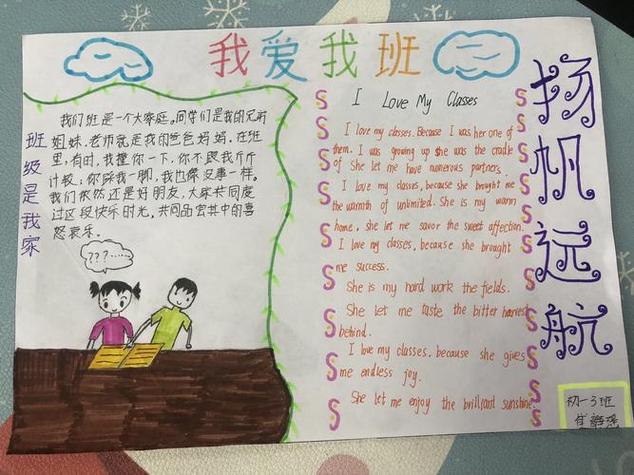 我爱我班
班级是我家
我们班是一个大家庭。同学们是我的兄弟
姐妹,老师就是我的爸爸妈妈。在班
里,有时,我撞你一下,你不跟我斤斤
计较;你踩我一脚,我也像没事一样。
我们依然还是好朋友,大家共同度
过这段快乐时光,共同品尝其中的喜
怒哀乐。
???……
I Love My Classes
I love my classes. Because I was her one of
them. I was growing up she was the cradle
of She let me have numerous partners.
I love my classes, because she brought me
the warmth of unlimited. She is my warm
home, she let me savor the sweet affection.
I love my classes, because she brought
me success.
She is my hard work the fields.
She let me taste the bitter harvest
behind.
I love my classes, because she gives
me endless joy.
She let me enjoy the brilliant sunshine.
扬帆远航
初一3班